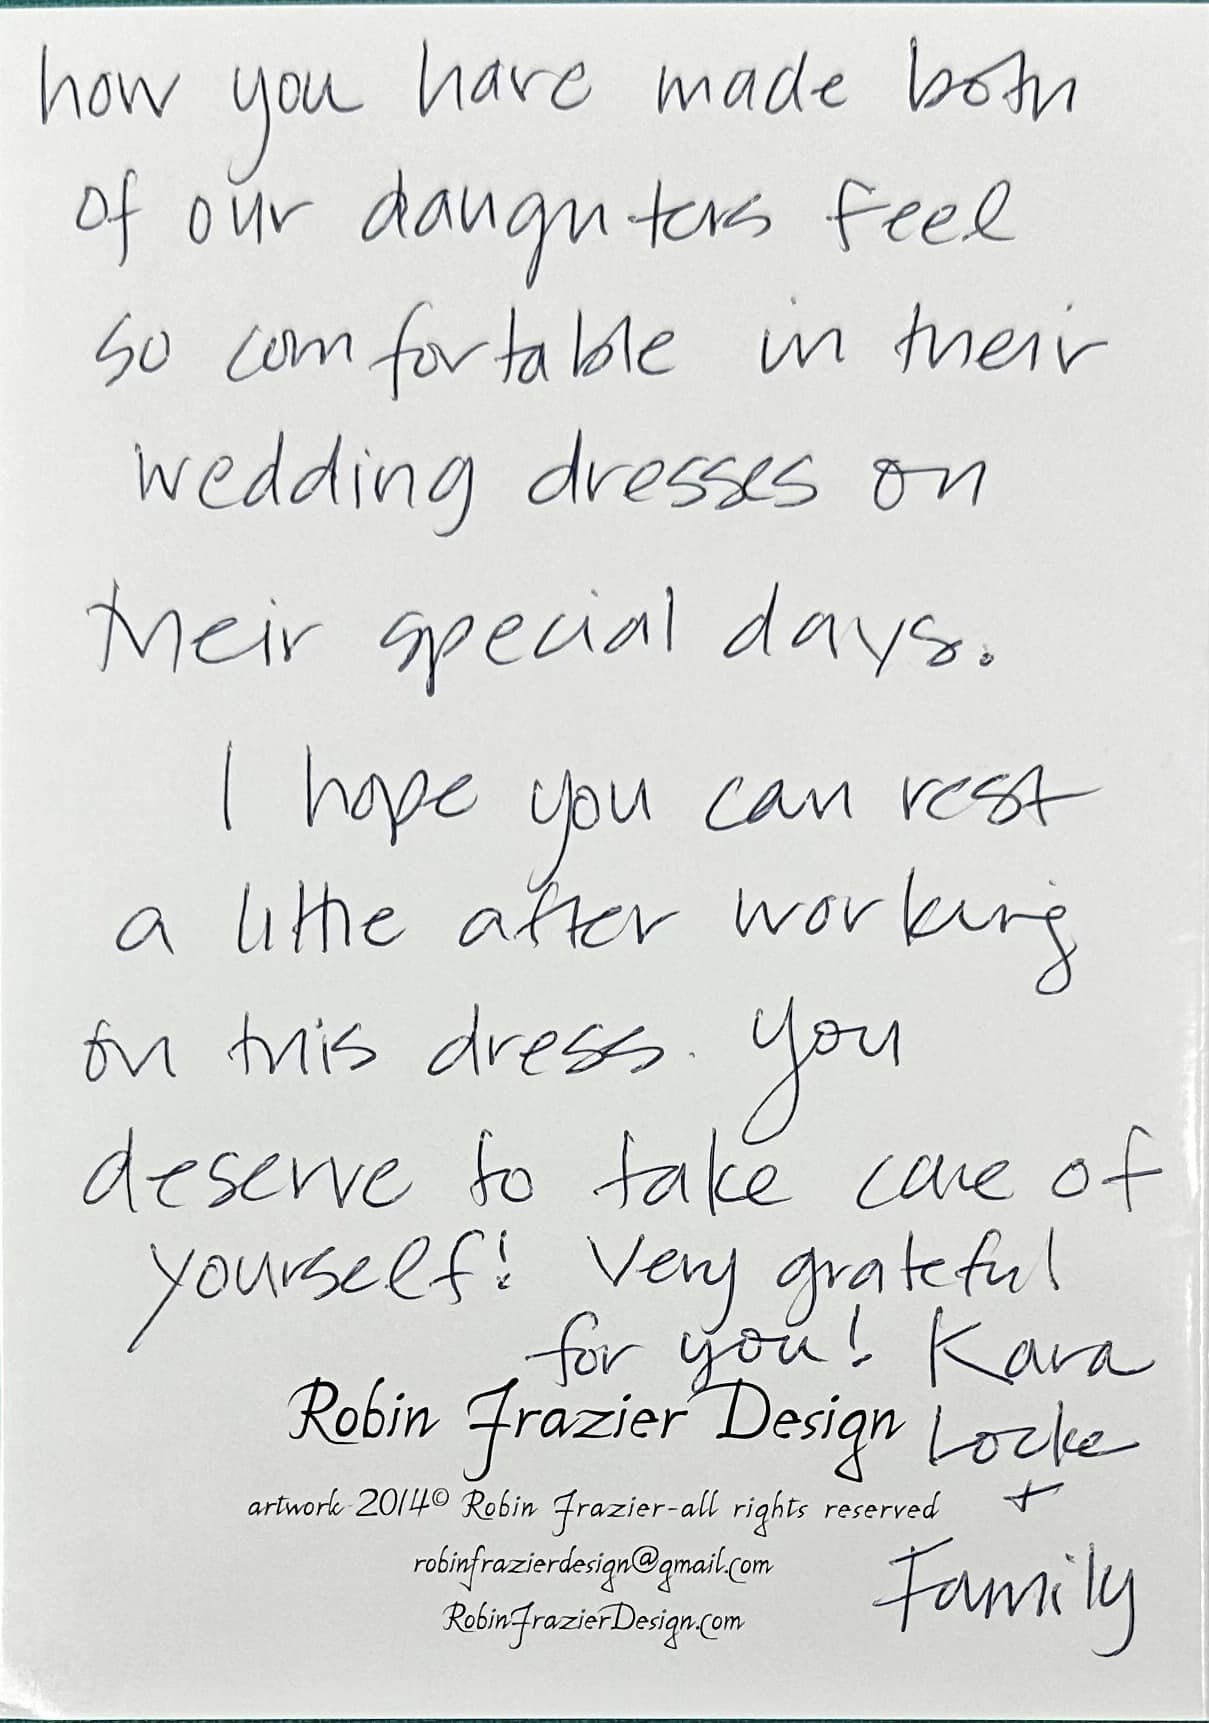 how you have made both
of our daughters feel
so comfortable in their
wedding dresses on
their special days.
I hope you can rest
a little after working
on this dress. You
deserve to take care of
yourself! Very grateful
for you! Kara
Locke
+
Family
Robin Frazier Design
artwork-2014© Robin Frazier-all rights reserved
robinfrazierdesign@gmail.com
RobinFrazierDesign.com